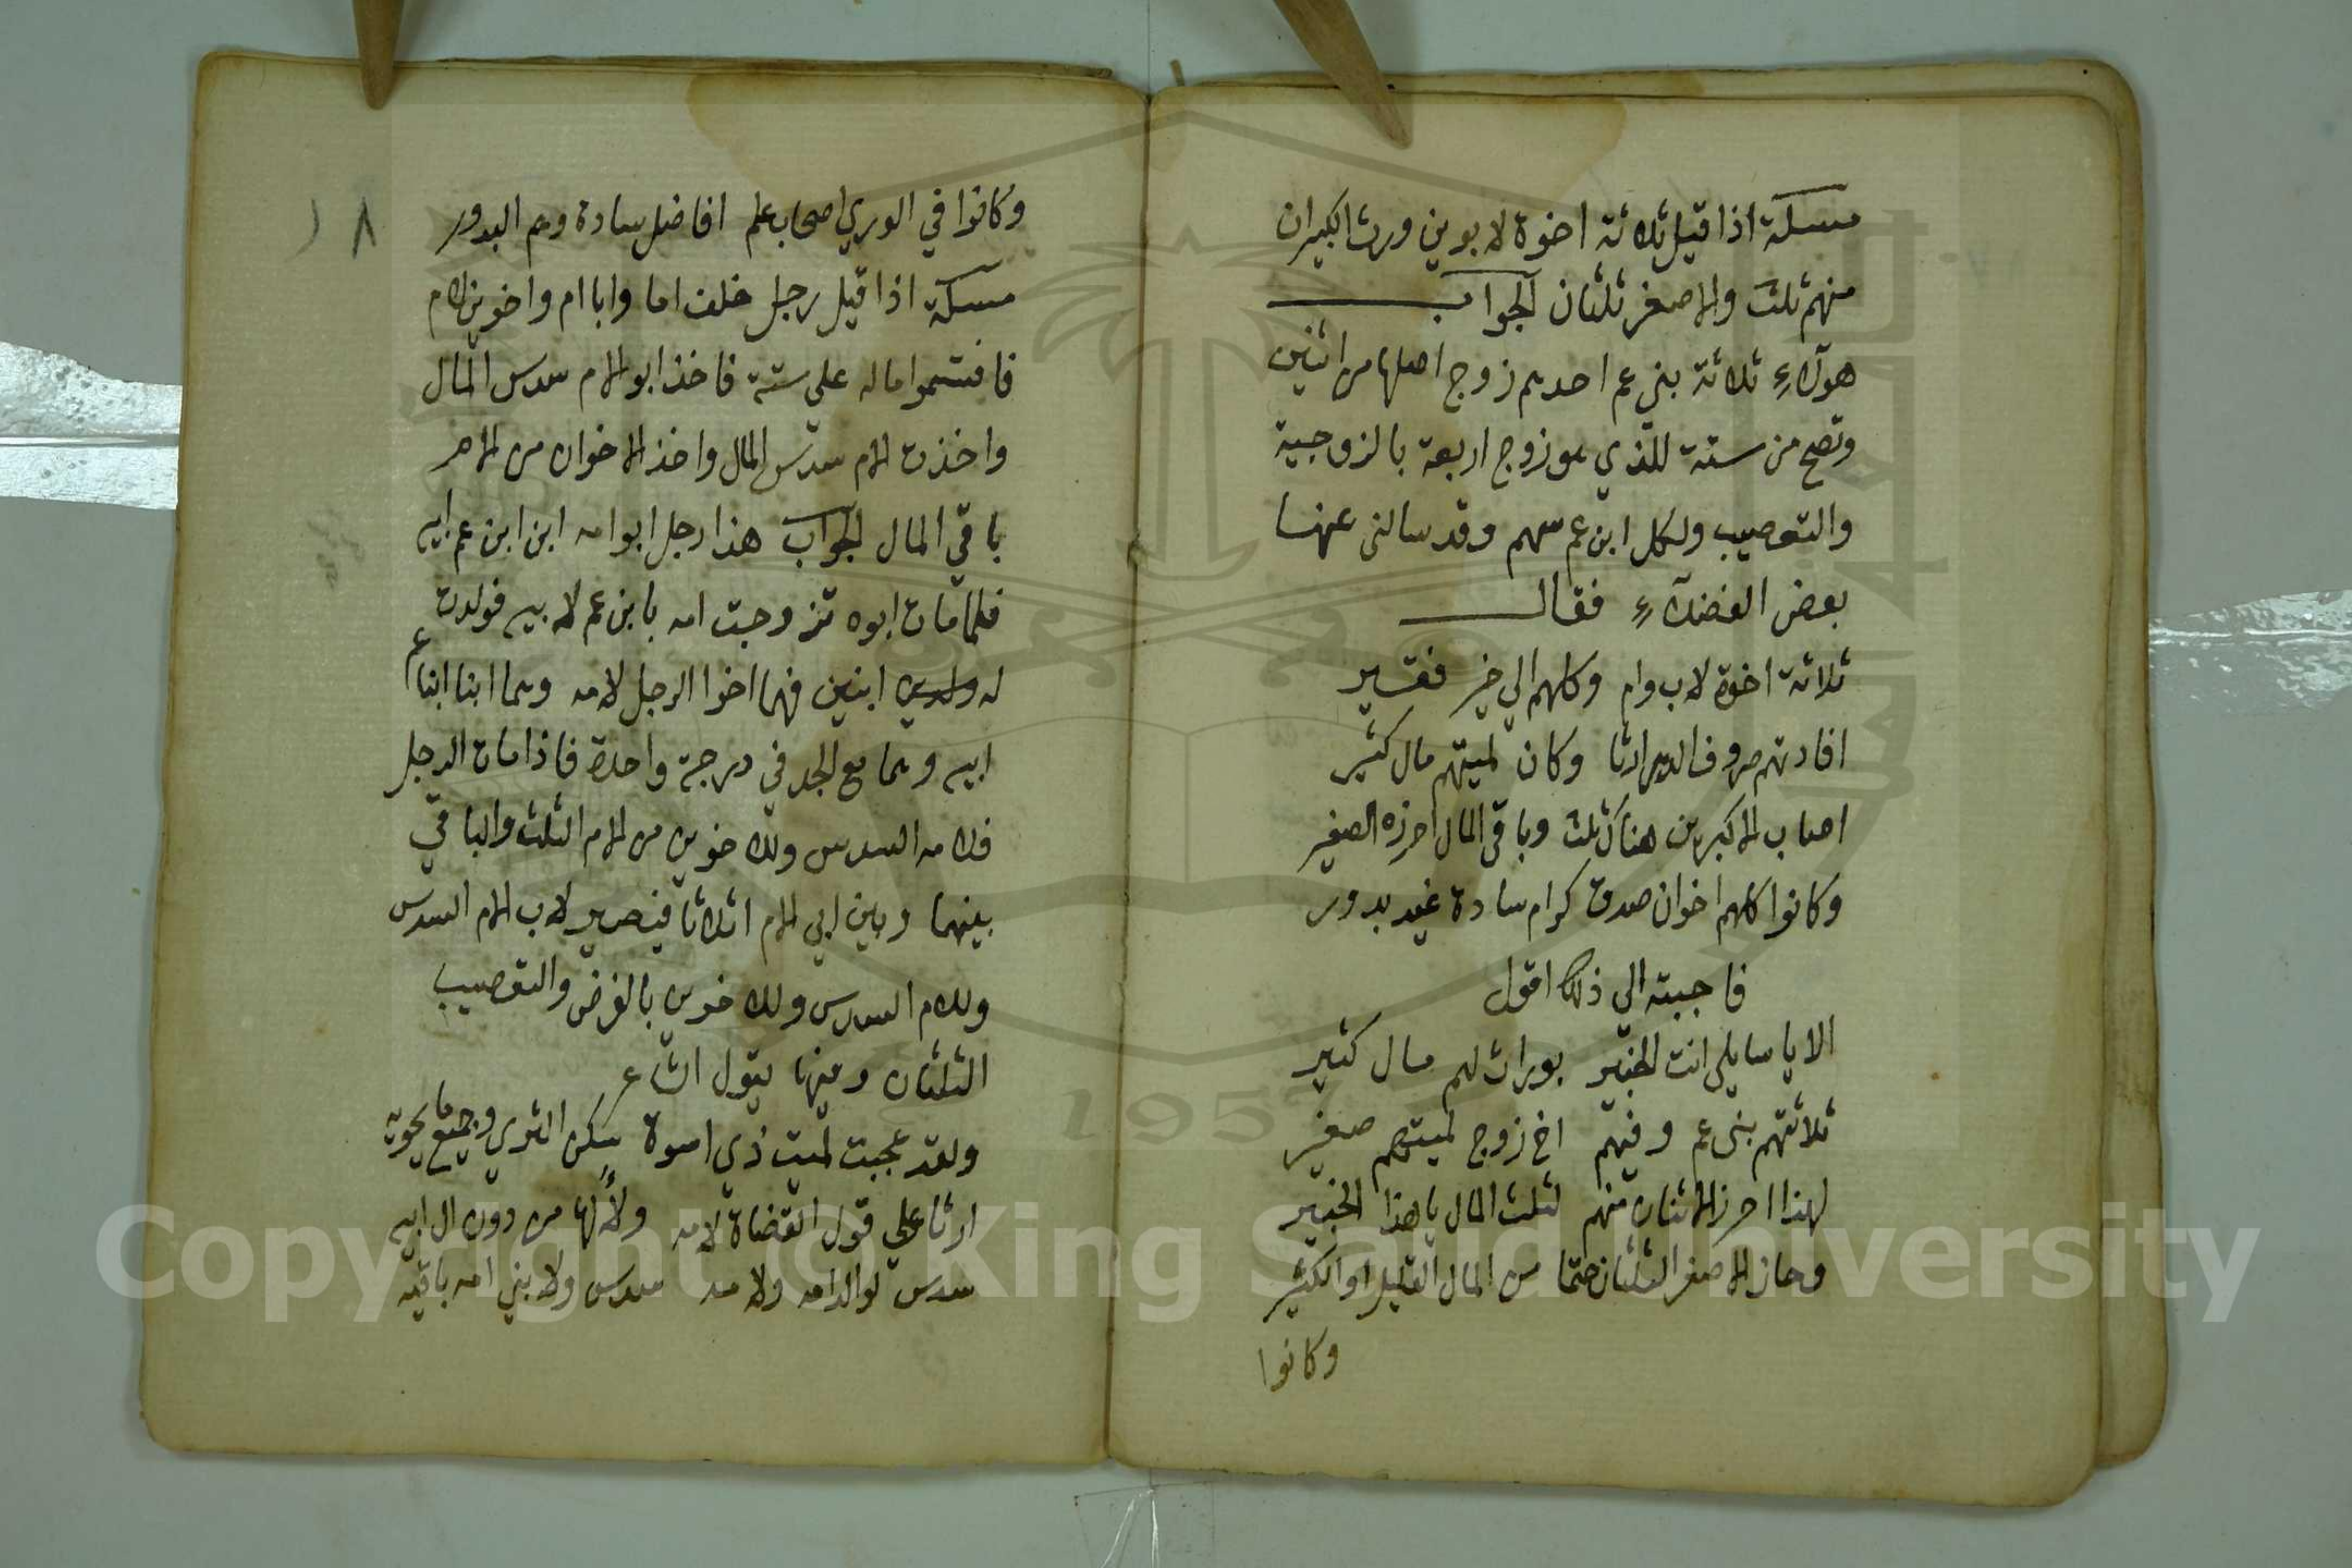 مسئلة اذا قيل ثلاثة اخوة لابوين ورث الكبيران
منهم ثلث والاصغر ثلثان الجواب
هولاء ثلاثة بني عم احدهم زوج اصلها من اثنين
وتصح من ستة للذي هو زوج اربعة بالزوجية
والتعصيب ولكل ابن عم سهم وقد سالني عنها
بعض الفضلاء فقال
ثلاثة اخوة لاب وام وكلهم الي خير فقير
افادتهم صروف الدهر ارثا وكان لميتهم مال كثير
اصاب الاكبرين هناك ثلث وباقي المال احرزه الصغير
وكانوا كلهم اخوان صدق كرام سادة غيد بدور
فاجبته الي ذلك اقول
الا يا سايلي انت الخبير بوراث لهم مال كثير
ثلاثتهم بني عم وفيهم اخ زوج لميتهم صغير
لهذا احرز الاثنان منهم لثلث المال يا هذا الخبير
وحاز الاصغر الثلثان حتما من المال القليل او الكثير
وكانوا
١٨
وكانوا في الوري اصحاب علم افاضل سادة وهم البدور
مسئلة اذا قيل رجل خلف اما وابا ام واخوين لام
فاقتسموا ماله علي ستة فاخذ ابو الام سدس المال
واخذت الام سدس المال واخذ الاخوان من الام
باقي المال الجواب هذا رجل ابو امه ابن ابن عم ابيه
فلما مات ابوه تزوجت امه بابن عم لابيه فولدت
له ولدين ابنين فهما اخوا الرجل لامه وهما ابنا ابنا عم
ابيه وهما مع الجد في درجة واحدة فاذا مات الرجل
فلامه السدس وللاخوين من الام الثلث والباقي
بينهما وبين ابي الام اثلاثا فيصير لاب الام السدس
وللام السدس وللاخوين بالفرض والتعصيب
الثلثان ومنها يقول الشاعر
ولقد عجبت لميت ذي اسوة سكن الثري وجميع ما يحويه
ارثا علي قول القضاة لامه ولآلها من دون ال ابيه
سدس لوالد امه ولامه سدس ولابني امه باقيه
Copyright © King Saud University
1957